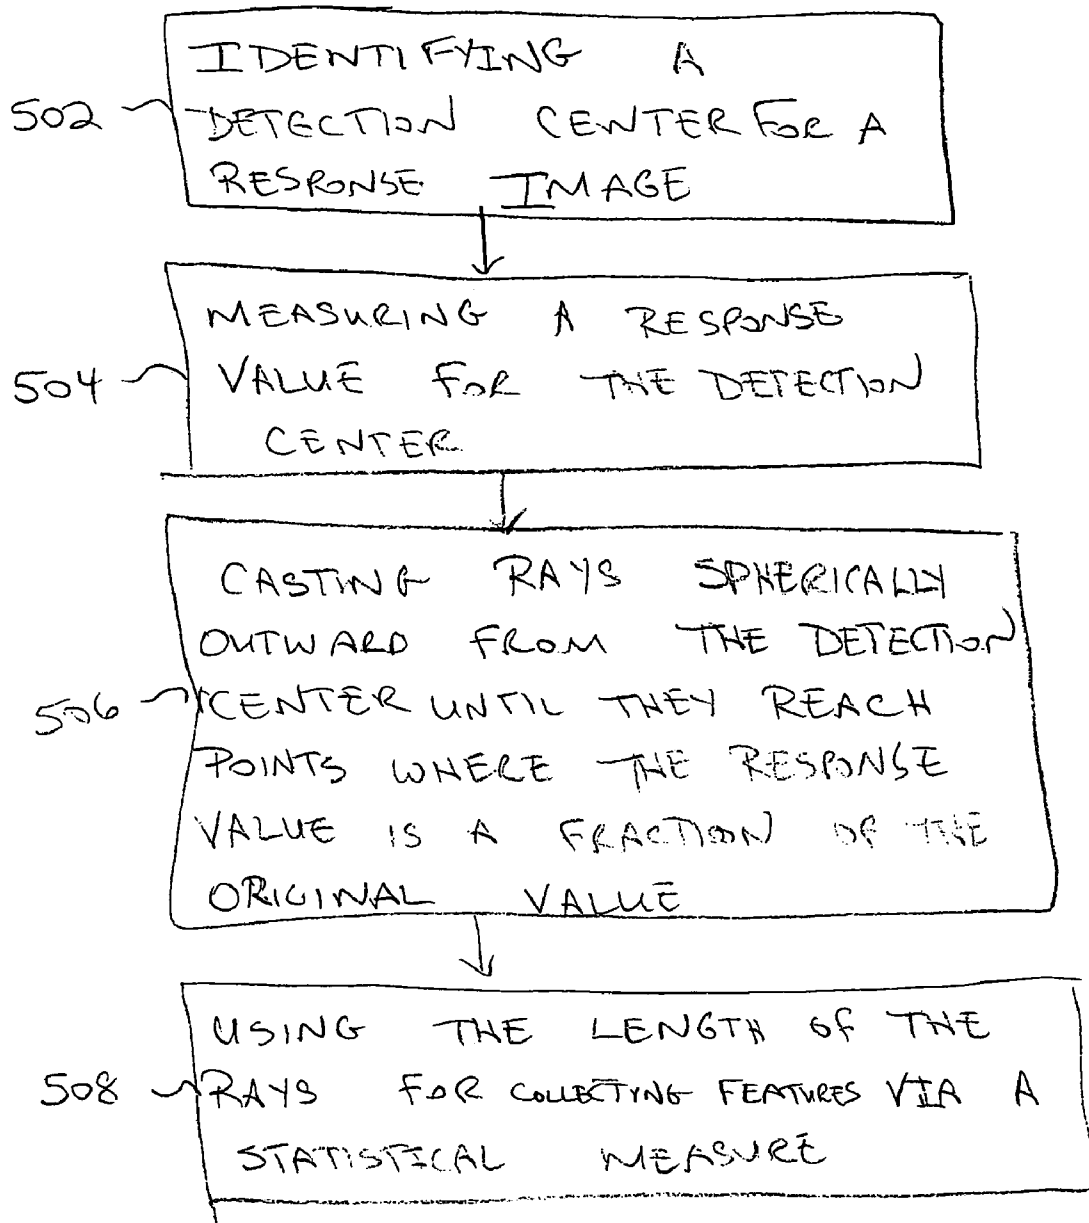 IDENTIFYING A
502
DETECTION CENTER FOR A
RESPONSE IMAGE
MEASURING A RESPONSE
504
VALUE FOR THE DETECTION
CENTER
CASTING RAYS SPHERICALLY
OUTWARD FROM THE DETECTION
506
CENTER UNTIL THEY REACH
POINTS WHERE THE RESPONSE
VALUE IS A FRACTION OF THE
ORIGINAL VALUE
USING THE LENGTH OF THE
508
RAYS FOR COLLECTING FEATURES VIA A
STATISTICAL MEASURE